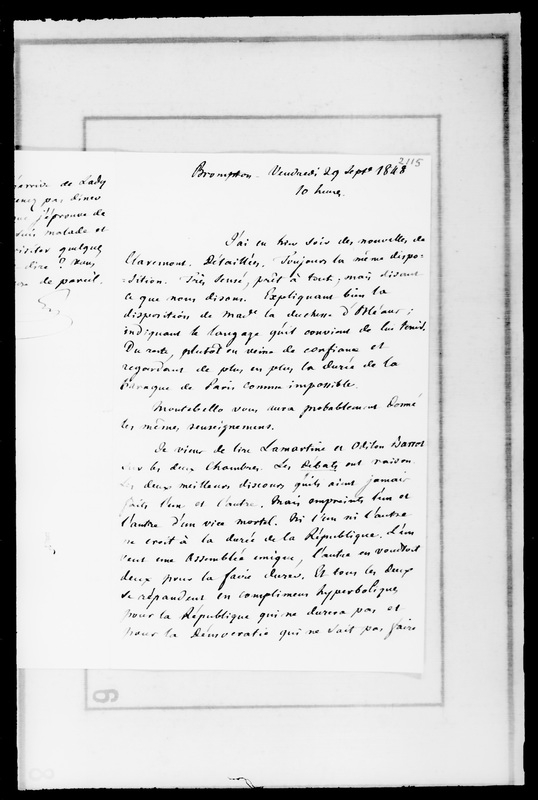 2115
Brompton - Vendredi 29 Septe 1848
10 heures.
J'ai eu hier soir des nouvelles de
Claremont. Détaillées. Toujours la même dispo-
-sition. Très sensé, prêt à tout, mais disant
ce que nous disons. Expliquant bien la
disposition de Made la duchesse d'Orléans;
indiquant le langage qu'il convient de lui tenir.
Du reste, plutôt en veine de confiance et
regardant de plus en plus la durée de la
baraque de Paris comme impossible.
Montebello vous aura probablement donné
les mêmes renseignemens.
Je viens de lire Lamartine et Odilon Barrot
sur les deux Chambres. Les Débats ont raison
Les deux meilleurs discours qu'ils aient jamais
faits l'un et l'autre. Mais empreints l'un et
l'autre d'un vice mortel. Ni l'un ni l'autre
ne croit à la durée de la République. L'un
veut une Assemblée unique, l'autre en voudrait
deux pour la faire durer. Et tous les deux
se répandent en complimens hyperboliques
pour la République qui ne durera pas et
pour la Démocratie qui ne sait pas faire
de Lady
pas diner
j'éprouve de
suis malade et
quelque
dire ? Vous
de pareil.
6
8